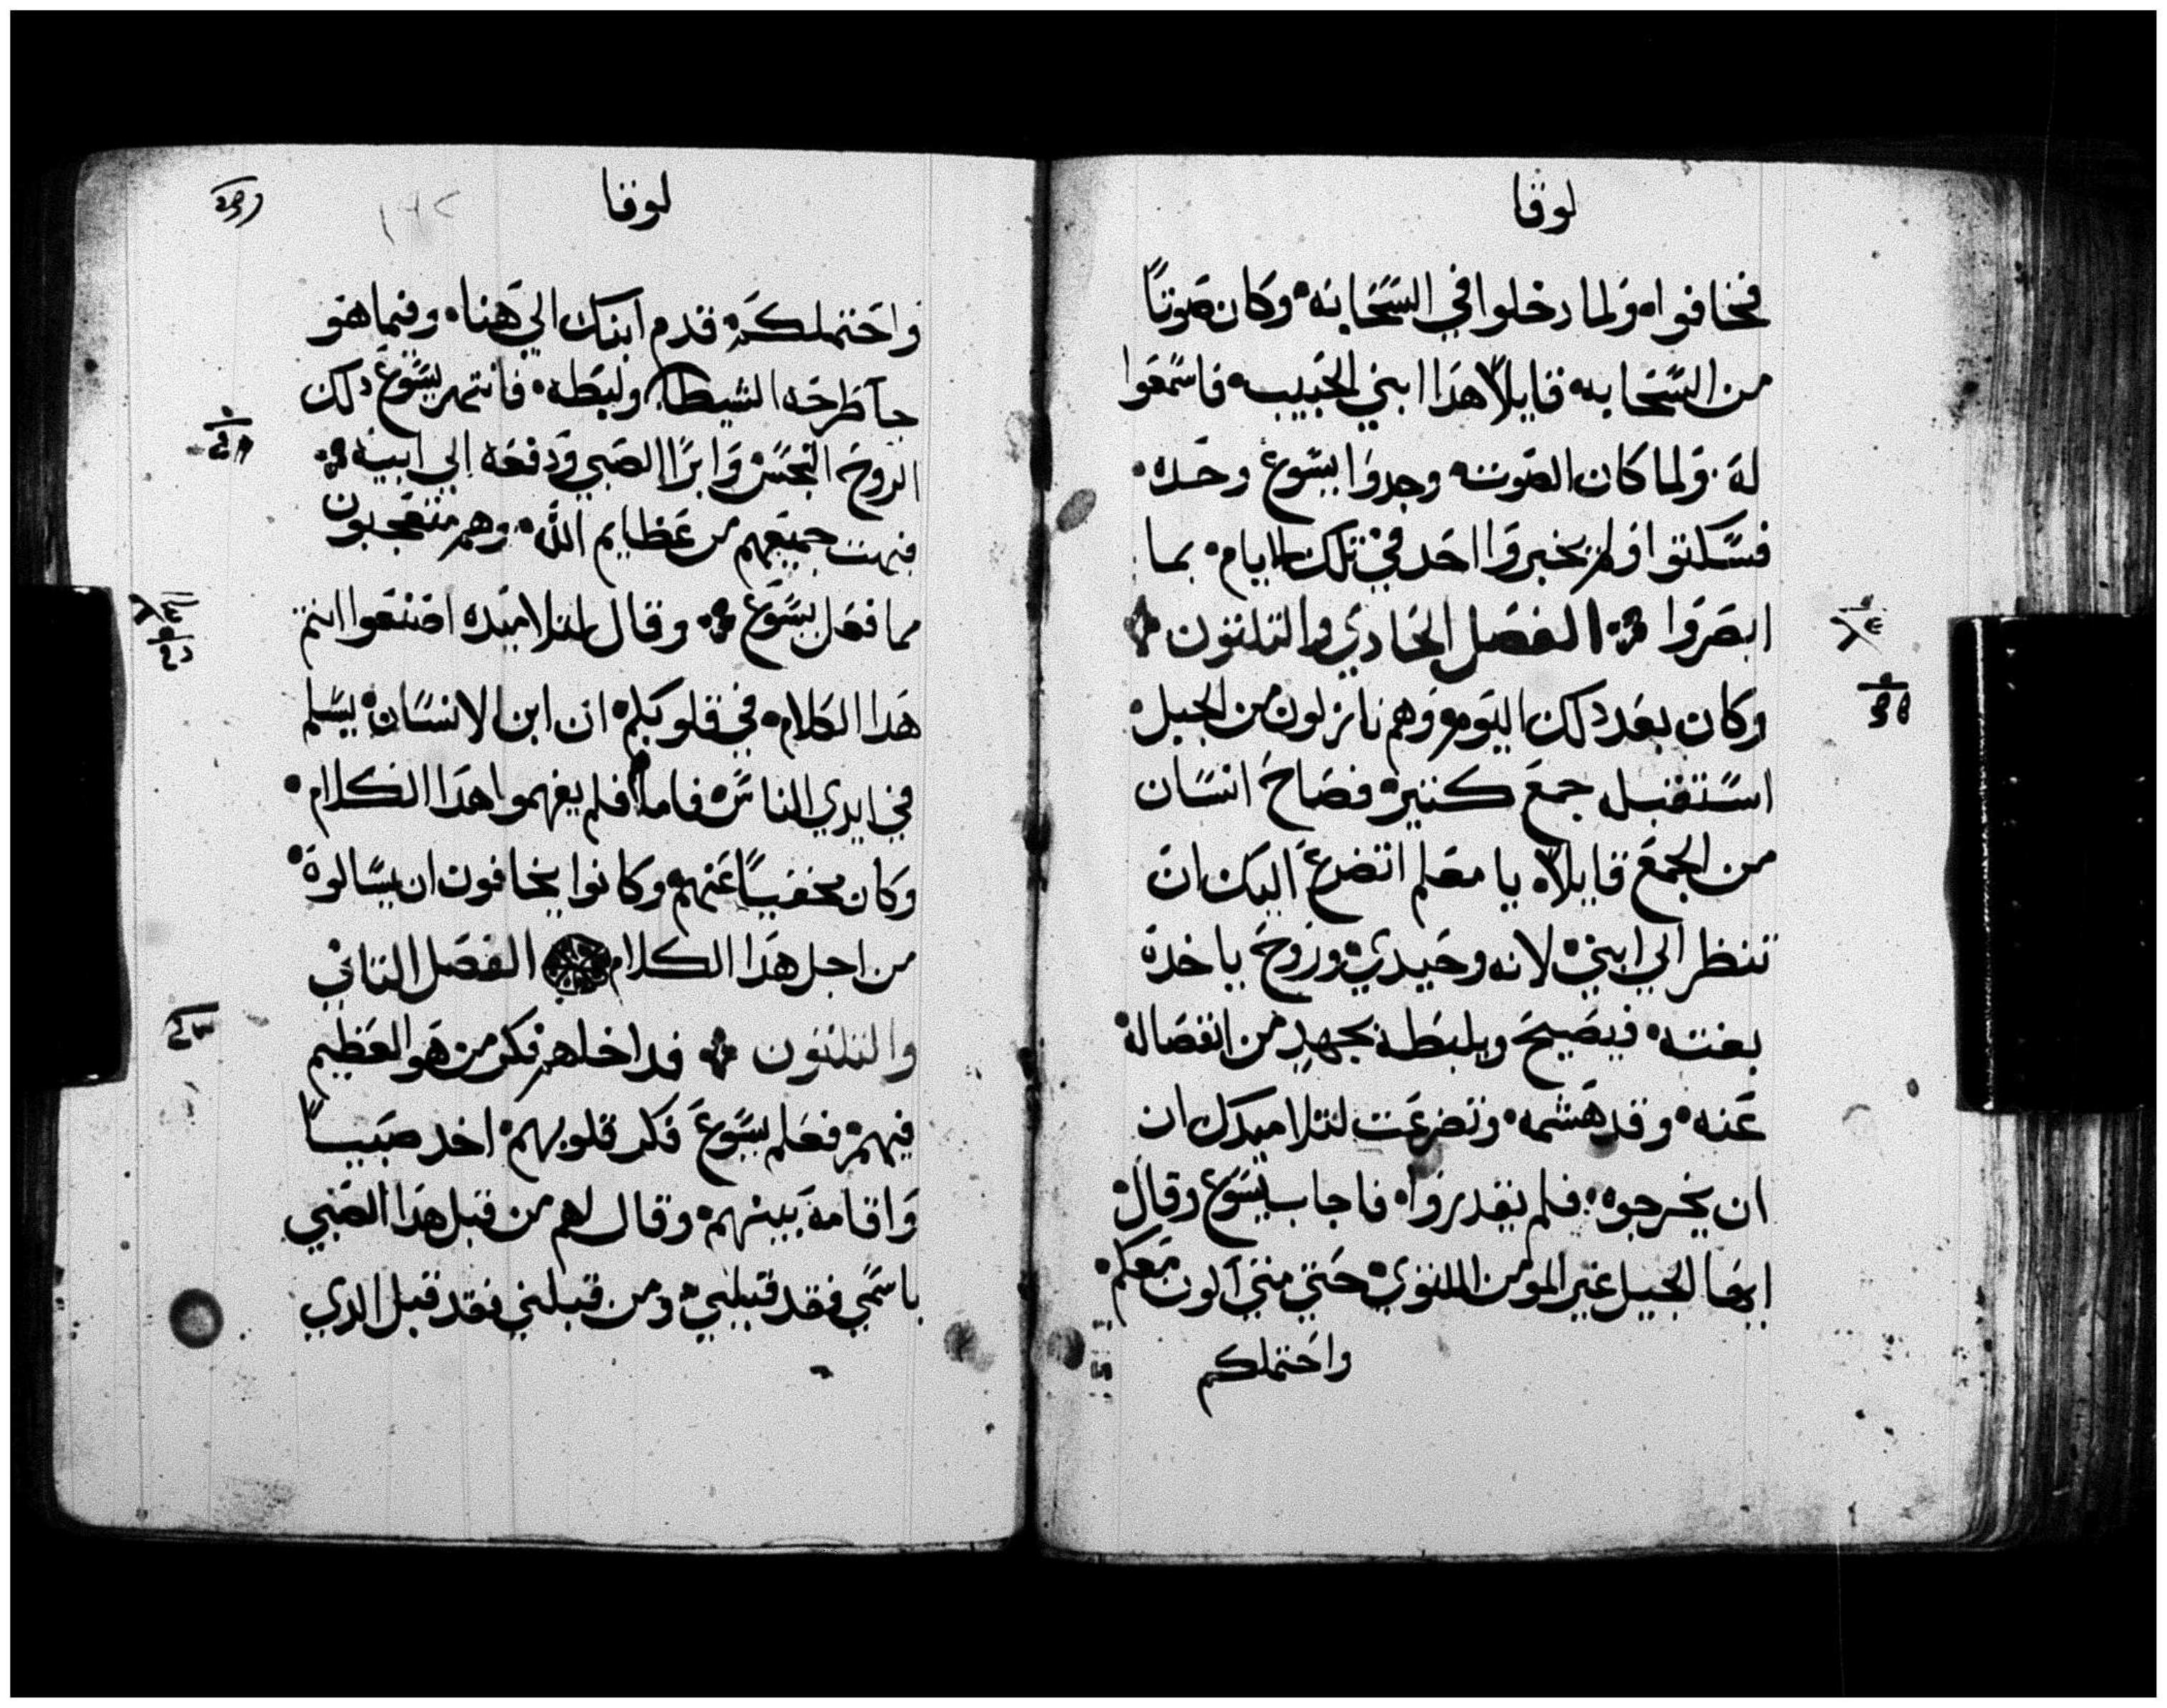 لوقا
فخافوا ولما دخلوا في السحابه وكان صوتاً
من السحابه قايلاً هدا ابني الحبيب فاسمعوا
له ولما كان الصوت وجدوا يسوع وحده
فسكتوا ولم يخبروا احد في تلك الايام بما
ابصروا الفصل الحادي والتلتون
وكان بعد دلك اليوم وهم نازلون من الجبل
استقبل جمع كتير فصاح انسان
من الجمع قايلاً يا معلم اتضرع اليك ان
تنظر الي ابني لانه وحيدي وروح ياخده
بغته فيصيح ويلبطه بجهد من انفصاله
عنه وقد هشمه وتضرعت لتلاميدك ان
ان يخرجوه فلم يقدروا فاجاب يسوع وقال
ايها الجيل غير المومن الملتوي حتي متي اكون معكم
واحتملكم
لوقا
واحتملكم قدم ابنك الي هنا وفيما هو
جا طرحه الشيطان ولبطه فانتهر يسوع دلك
الروح النجس وابرا الصبي ودفعه الي ابيه
فبهت جميعهم من عظايم الله وهم متعجبون
مما فعل يسوع وقال لتلاميده اصنعوا انتم
هدا الكلام في قلوبكم ان ابن الانسان يسلم
في ايدي الناس فاما فلم يفهموا هدا الكلام
وكان مخفياً عنهم وكانوا يخافون ان يسالوه
من اجل هدا الكلام الفصل التاني
والتلتون فداخلهم فكر من هو العظيم
فيهم فعلم يسوع فكر قلوبهم اخد صبياً
واقامه بينهم وقال لهم من قبل هدا الصبي
باسمي فقد قبلني ومن قبلني فقد قبل الدي